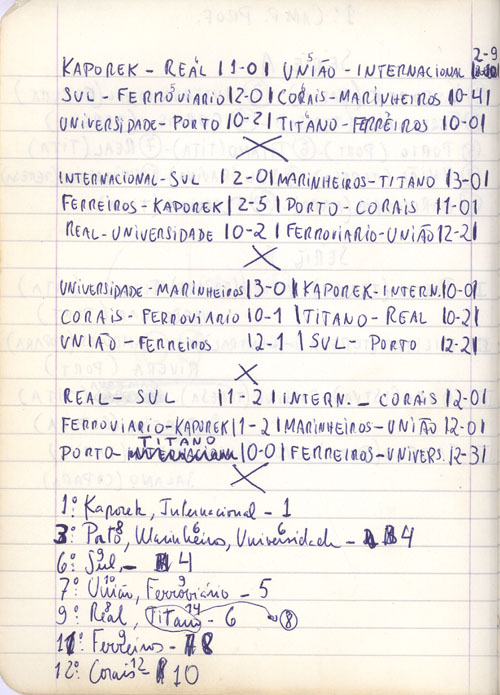 2-9
KAPOREK - REAL |1-0| UNIÃO - INTERNACIONAL
SUL - FERROVIARIO |2-0| CORAIS - MARINHEIROS |0-4|
UNIVERSIDADE - PORTO |0-2| TITANO - FERREIROS |0-0|
INTERNACIONAL - SUL |2-0| MARINHEIROS - TITANO |3-0|
FERREIROS - KAPOREK |2-5| PORTO - CORAIS |1-0|
REAL - UNIVERSIDADE |0-2| FERROVIARIO - UNIÃO |2-2|
UNIVERSIDADE - MARINHEIROS |3-0| KAPOREK - INTERN. |0-0|
CORAIS - FERROVIARIO |0-1| TITANO - REAL |0-2|
UNIÃO - FERREIROS |2-1| SUL - PORTO |2-2|
REAL - SUL |1-2| INTERN. - CORAIS |2-0|
FERROVIARIO - KAPOREK |1-2| MARINHEIROS - UNIÃO |2-0|
PORTO - TITANO |0-0| FERREIROS - UNIVERS. |2-3|
1º: Kaporek, Internacional - 1
3º: Porto 8, Marinheiros 6, Universidade 6 - 4
6º: Sul 9 - 4
7º: União 10, Ferroviário 9 - 5
9º: Real 8, Titano 14 - 6 8
11º: Ferreiros 9 - 8
12º: Corais 12 - 10